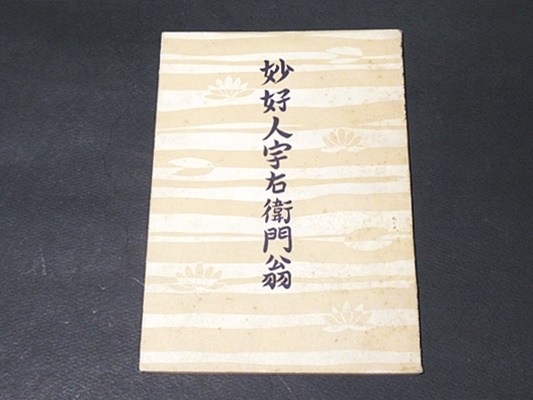 妙好人宇右衛門翁